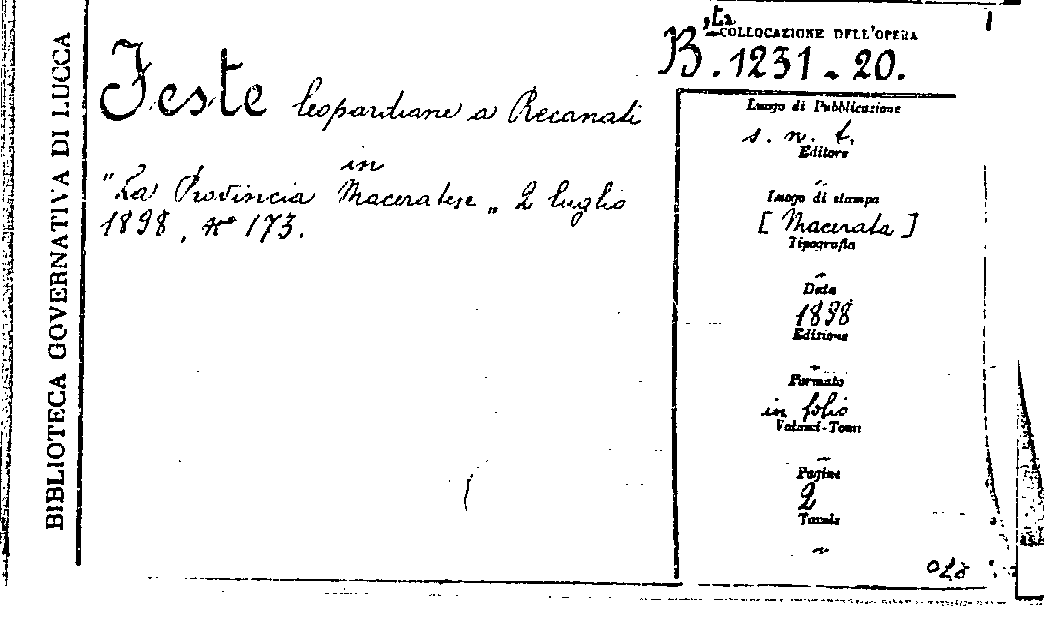 BIBLIOTECA GOVERNATIVA DI LUCCA
Feste leopardiane a Recanati
in
"La Provincia Maceratese„ 2 luglio
1898, n° 173.
B.ta
COLLOCAZIONE DELL'OPERA
B.1231-20.
Luogo di Pubblicazione
s. n. t.
Editore
~
Luogo di stampa
[Macerata]
Tipografia
~
Data
1898
Edizione
~
Formato
in folio
Volumi-Tomi
~
Pagine
2
Tavole
~